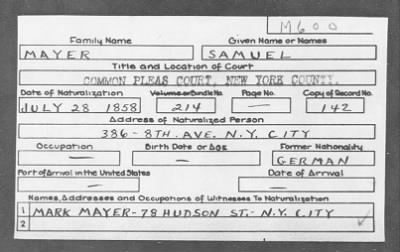 M600
Family Name Given Name or Names
MAYER SAMUEL
Title and Location of Court
COMMON PLEAS COURT, NEW YORK COUNTY.
Date of Naturalization Volume or Bundle No. Page No. Copy of Record No.
JULY 28 1858 214 — 142
Address of Naturalized Person
386-8TH. AVE. N.Y. CITY
Occupation Birth Date or Age Former Nationality
— — GERMAN
Port of Arrival in the United States Date of Arrival
— —
Names, Addresses and Occupations of Witnesses To Naturalization
1 MARK MAYER-78 HUDSON ST.-N.Y. CITY
2